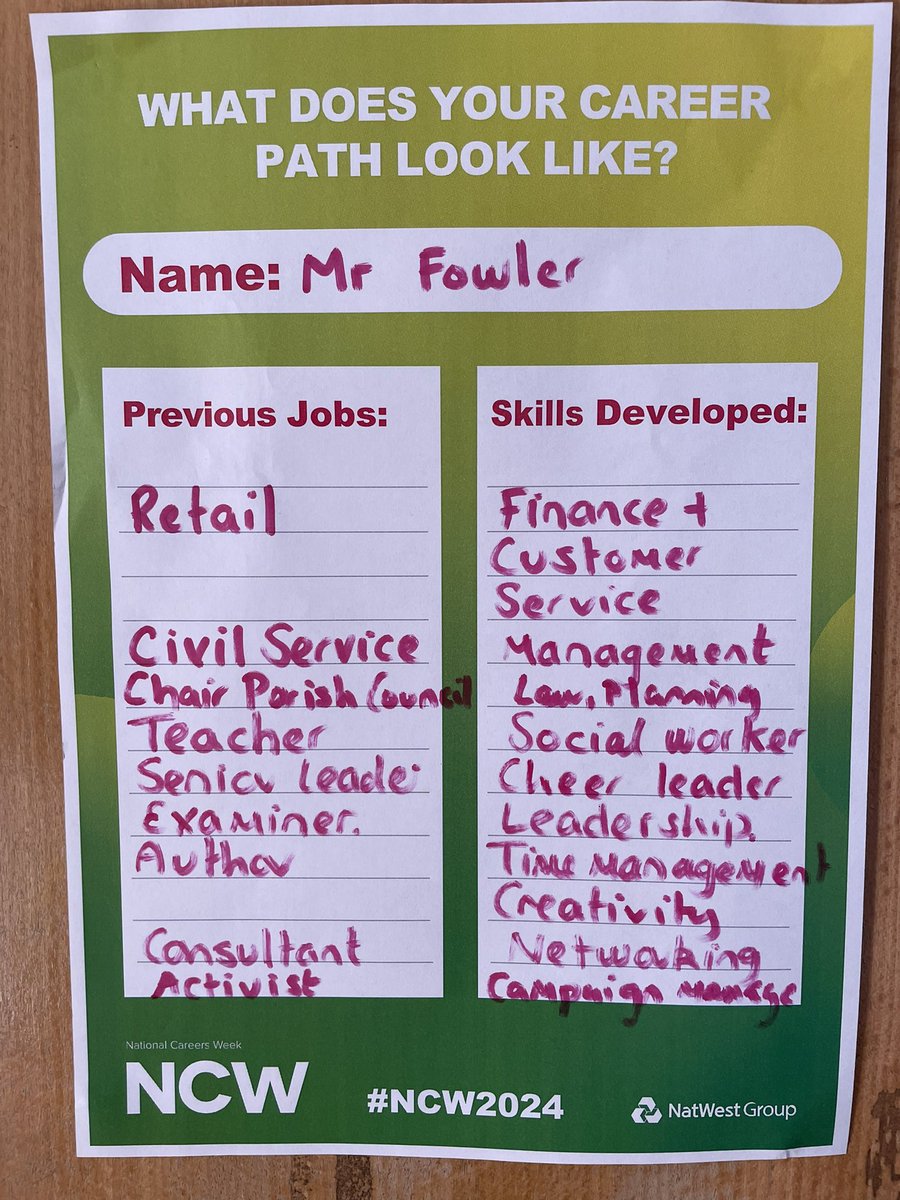 WHAT DOES YOUR CAREER
PATH LOOK LIKE?
Name: Mr Fowler
Previous Jobs:
Retail
Civil Service
Chair Parish Council
Teacher
Senior Leader
Examiner.
Author
Consultant
Activist
Skills Developed:
Finance +
Customer
Service
Management
Law, Planning
Social worker
Cheer leader
Leadership.
Time Management
Creativity
Networking
Campaign Manage
National Careers Week
NCW
#NCW2024
NatWest Group